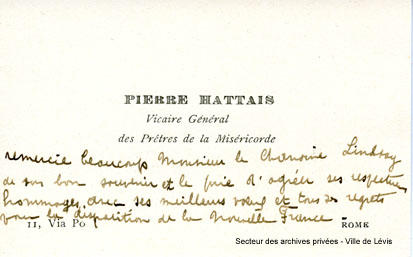 PIERRE HATTAIS
Vicaire Général
des Prêtres de la Miséricorde
remercie beaucoup Monsieur le Chanoine Lindsay
de son bon souvenir et le prie d'agréer ses respectueux
hommages, avec ses meilleurs vœux et tous ses regrets
pour la disparition de la Nouvelle France
11, Via Po ROME
Secteur des archives privées - Ville de Lévis